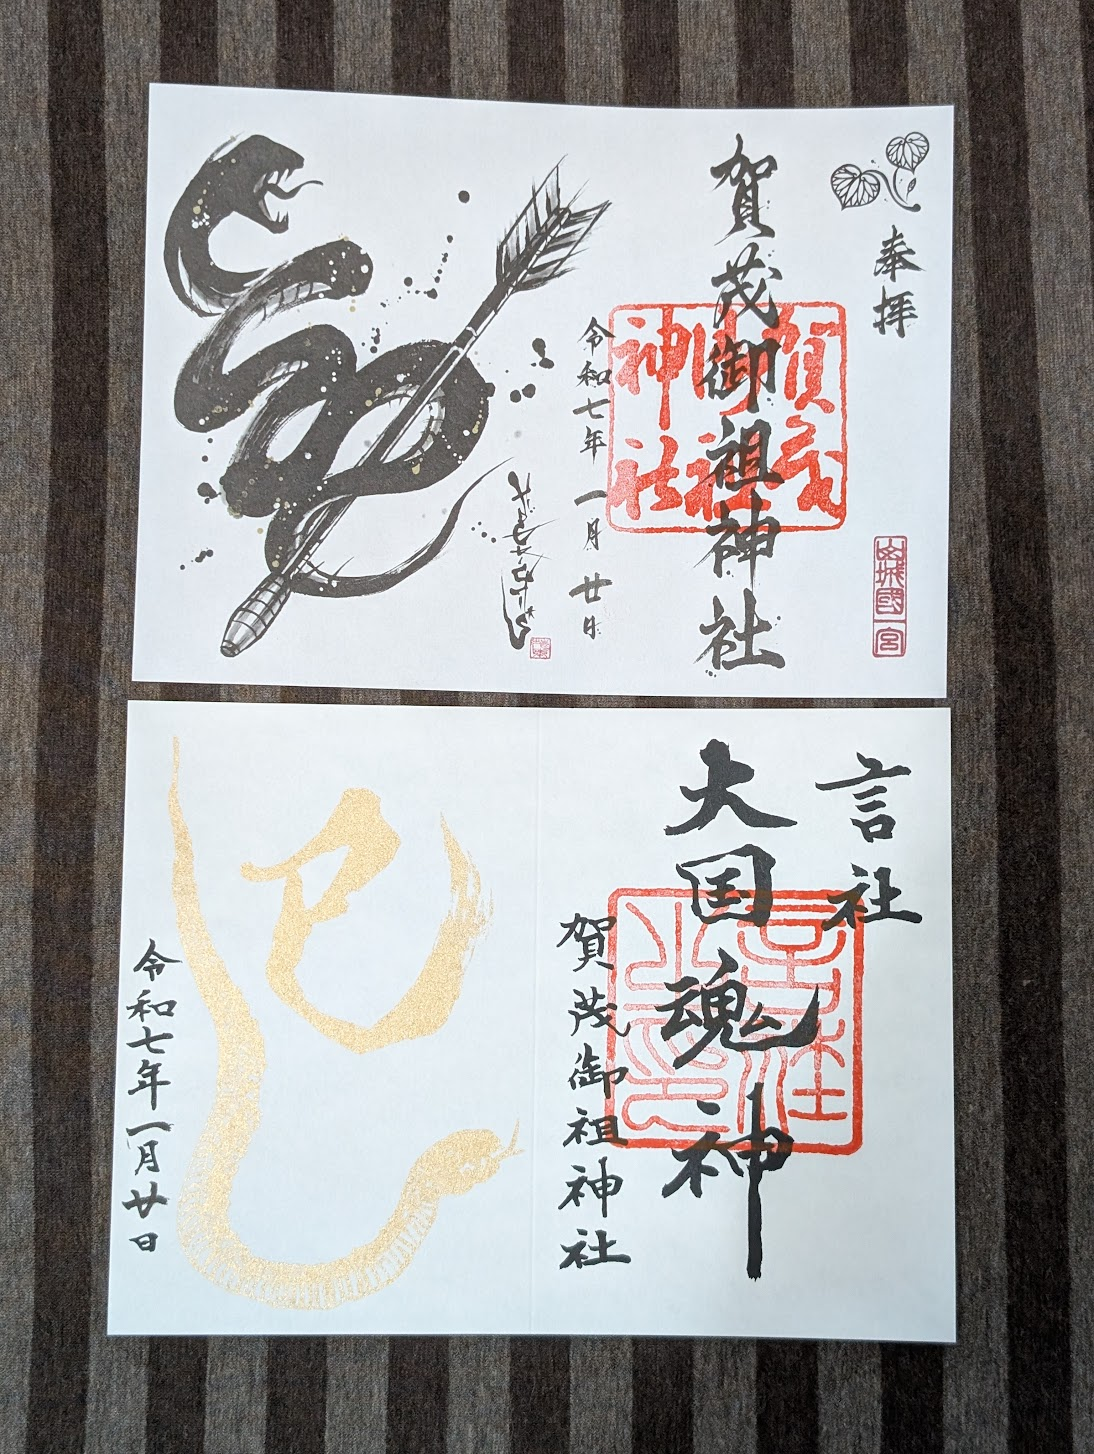 奉拝
山城國一宮
賀茂御祖神社
賀茂御祖神社
令和七年一月廿日
言社
大国魂神
言社之印
賀茂御祖神社
巳
令和七年一月廿日